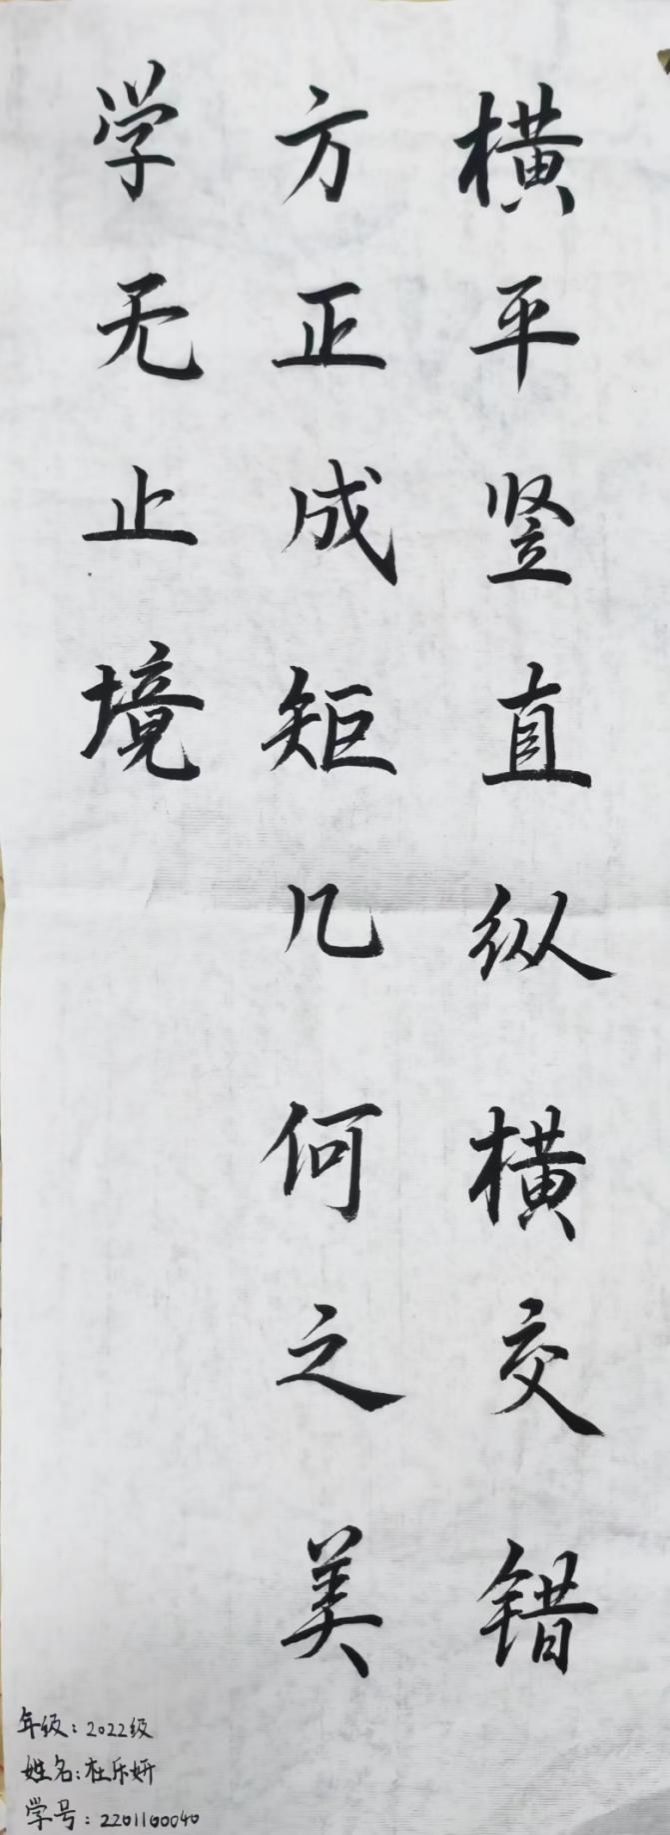 横平竖直纵横交错
方正成矩几何之美
学无止境
年级：2022级
姓名：杜乐妍
学号：2201100040